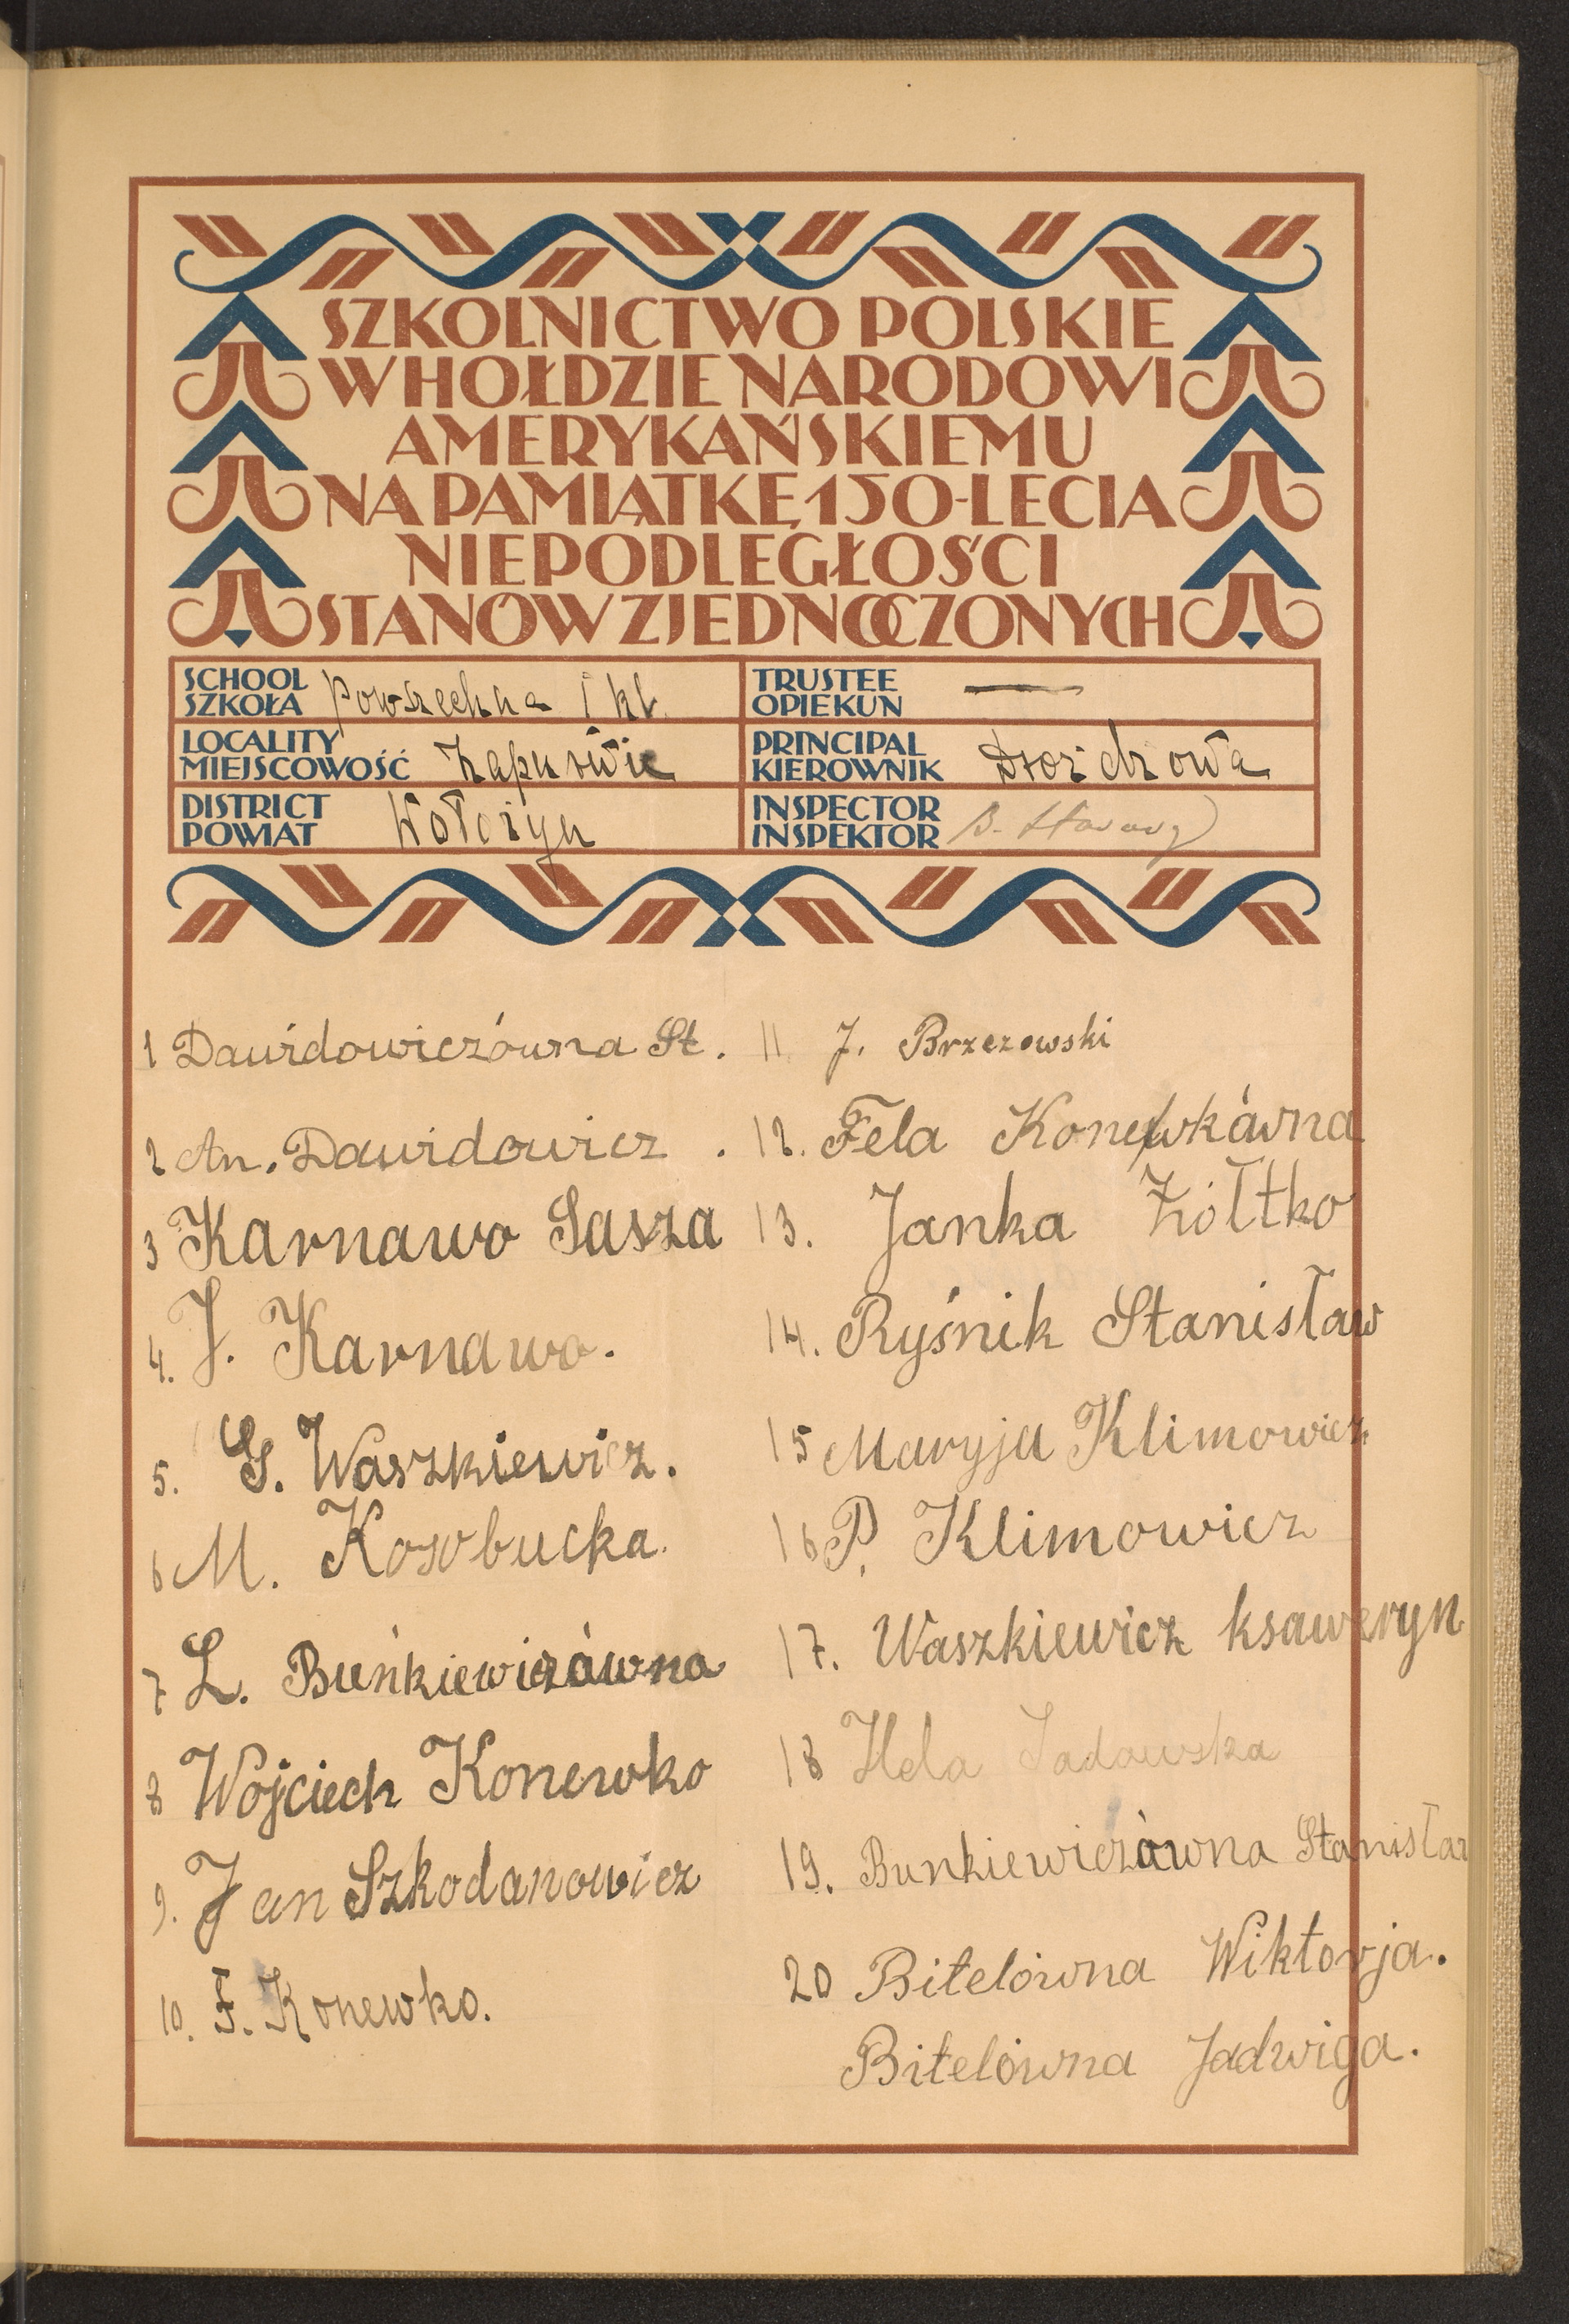 SZKOLNICTWO POLSKIE
W HOŁDZIE NARODOWI
AMERYKAŃSKIEMU
NA PAMIĄTKĘ 150-LECIA
NIEPODLEGŁOŚCI
STANÓW ZJEDNOCZONYCH
SCHOOL
SZKOŁA Powszechna 1 kl.
TRUSTEE
OPIEKUN —
LOCALITY
MIEJSCOWOŚĆ
PRINCIPAL
KIEROWNIK
DISTRICT
POWIAT Wołożyn
INSPECTOR
INSPEKTOR B.
1 Dawidowiczówna St.
2 An. Dawidowicz.
3 Karnawo Sasza
4. J. Karnawo.
5. S. Waszkiewicz.
6 M. Kosobucka.
7 L. Buńkiewiczówna
8 Wojciech Konewko
9. Jan Szkodanowicz
10. F. Konewko.
11 J. Brzezowski
12. Fela Konewkówna
13. Janka Żółtko
14. Ryśnik Stanisław
15 Maryja Klimowicz
16 P. Klimowicz
17. Waszkiewicz ksaweryn
18 Hela Sadowska
19. Bunkiewiczówna Stanisław
20 Bitelówna Wiktorja.
Bitelówna Jadwiga.